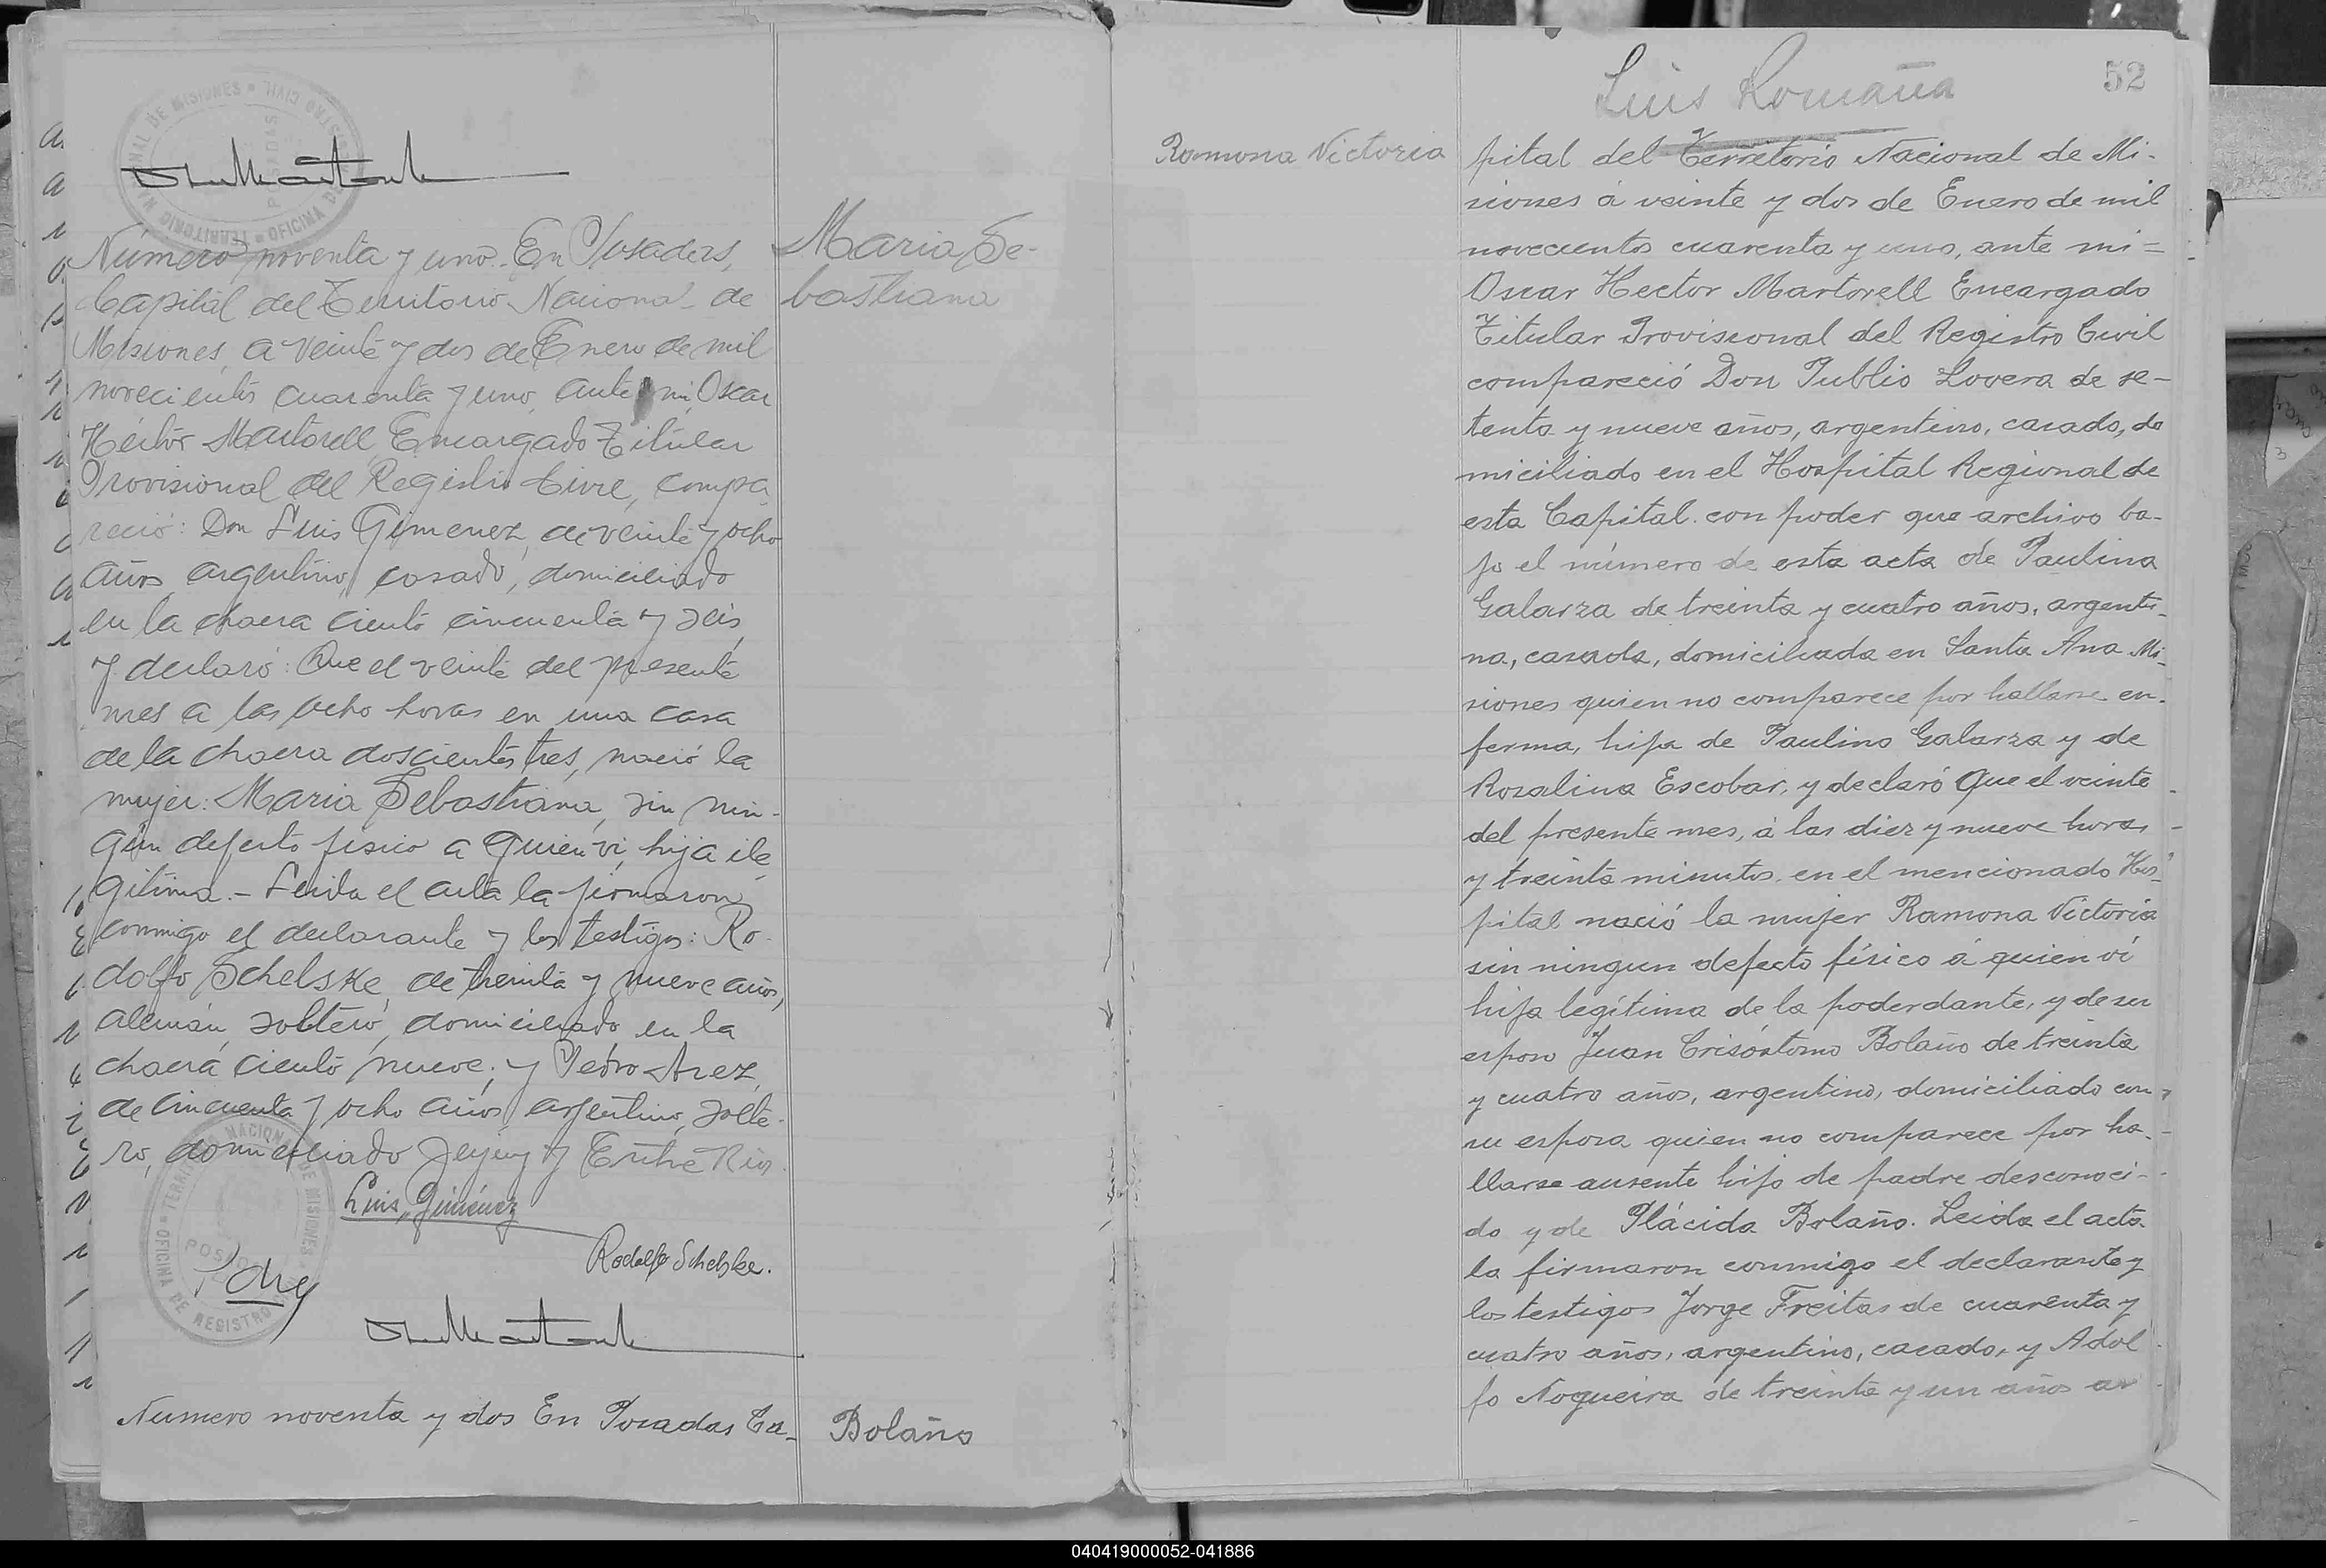 Número noventa y uno. En Posadas,
Capital del Territorio Nacional de
Misiones, a veinte y dos de Enero de mil
novecientos cuarenta y uno, ante mi, Oscar
Héctor Martorell, Encargado Titular
Provisional del Registro Civil, compa
reció: Don Luis Gimenez, de veinte y ocho
años, argentino, casado, domiciliado
en la chacra ciento cincuenta y seis,
y declaró: Que el veinte del presente
mes a las ocho horas en una casa
de la chacra doscientos tres, nació la
mujer: Maria Sebastiana, sin nin-
gún defecto físico a quien vi, hija ile
gítima.- Leida el acta la firmaron
conmigo el declarante y los testigos: Ro-
dolfo Schelske, de treinta y nueve años,
alemán, soltero, domiciliado en la
chacra ciento nueve; y Pedro Arez,
de cincuenta y ocho años, argentino, solte-
ro, domiciliado Jujuy y Entre Rios.
Luis Giménez
Rodolfo Schelske.
Numero noventa y dos En Posadas Ca-
Maria Se-
bastiana
Bolaño
Luis Romaña
52
Ramona Victoria
pital del Territorio Nacional de Mi-
siones á veinte y dos de Enero de mil
novecientos cuarenta y uno, ante mi=
Oscar Hector Martorell Encargado
Titular Provisional del Registro Civil
compareció Don Publio Lovera de se-
tenta y nueve años, argentino, casado, do
miciliado en el Hospital Regional de
esta Capital. con poder que archivo ba-
jo el número de esta acta de Paulina
Galarza de treinta y cuatro años, argenti-
na, casada, domiciliada en Santa Ana Mi-
siones quien no comparece por hallarse en-
ferma, hija de Paulino Galarza y de
Rosalina Escobar, y declaró Que el veinte
del presente mes, á las diez y nueve horas
y treinta minutos en el mencionado Hos-
pital nació la mujer Ramona Victoria
sin ningun defecto físico á quien ví
hija legítima de la poderdante, y de su
esposo Juan Crisóstomo Bolaño de treinta
y cuatro años, argentino, domiciliado con
su esposa quien no comparece por ha-
llarse ausente hijo de padre desconoci-
do y de Plácida Bolaño. Leida el acta
la firmaron conmigo el declarante y
los testigos Jorge Freitas de cuarenta y
cuatro años, argentino, casado, y Adol
fo Nogueira de treinta y un años ar
040419000052-041886